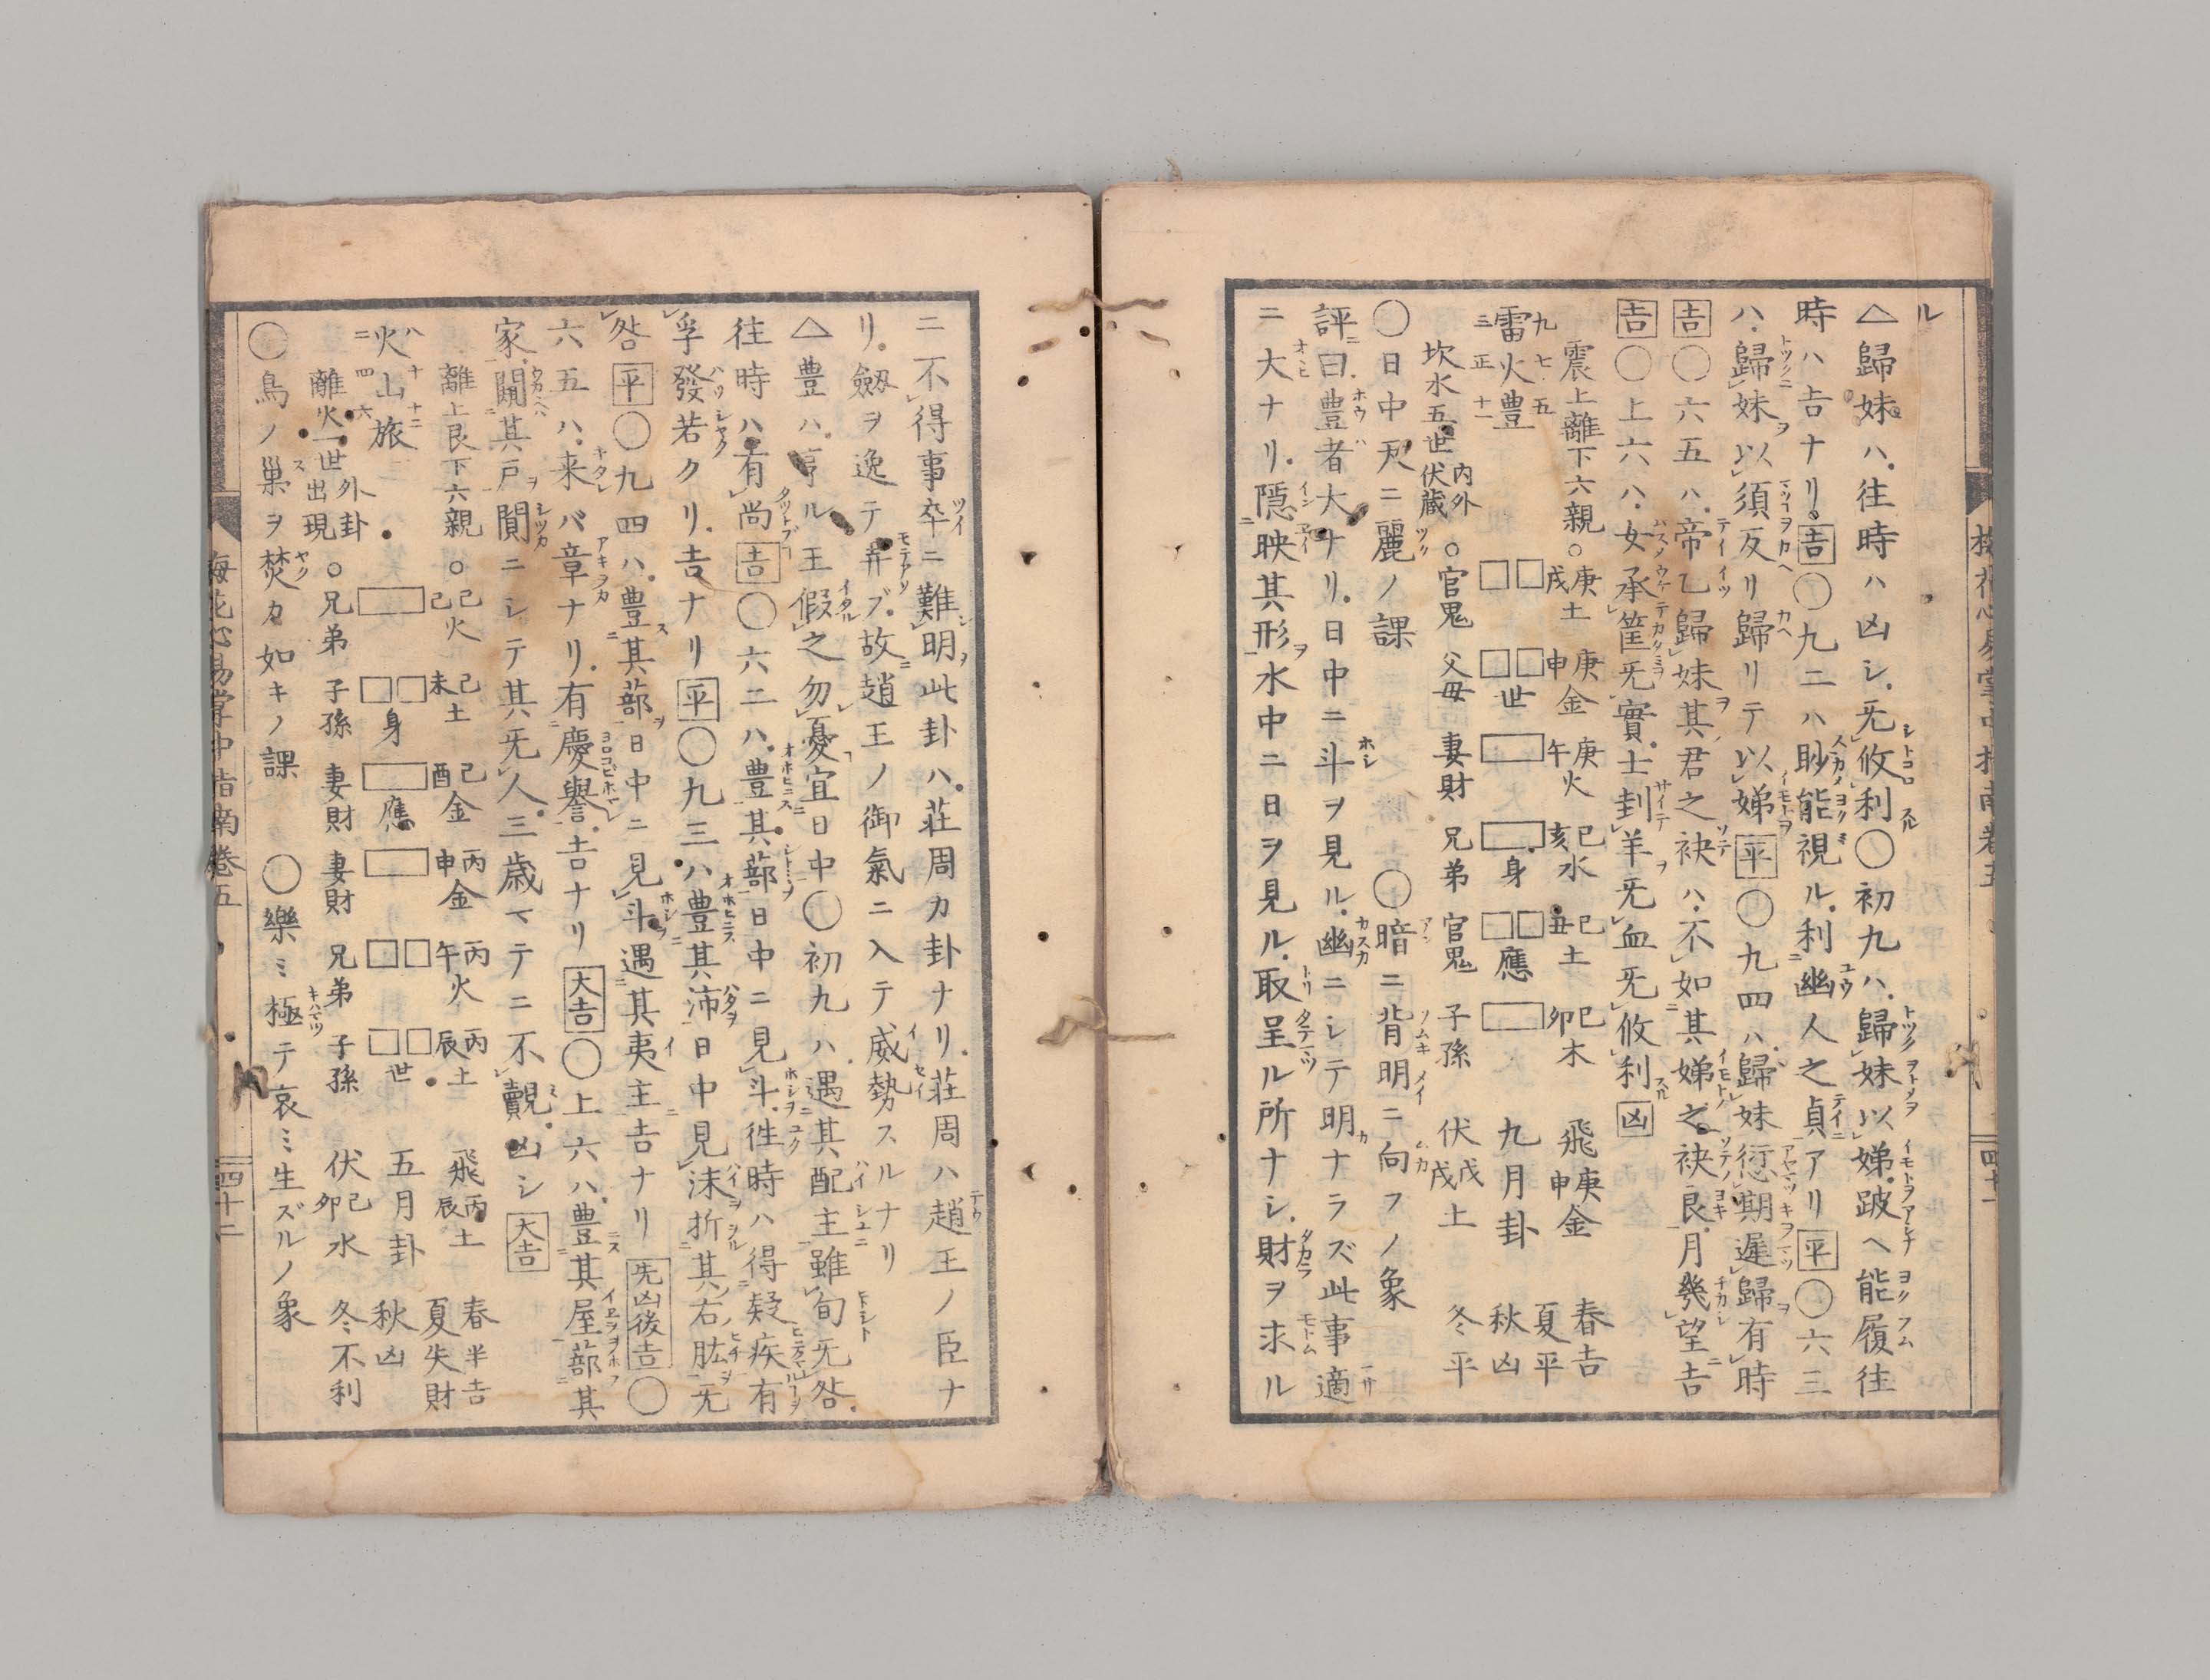 ル
△歸妹ハ往時ハ凶シ无攸利○初九ハ歸妹以娣跛ヘ能履往
時ハ吉ナリ吉○九二ハ眇能視ル利幽人之貞アリ平○六三
ハ歸妹以須反リ歸リテ以娣平○九四ハ歸妹愆期遲歸有時
吉○六五ハ帝乙歸妹其君之袂ハ不如其娣之袂良月幾望吉
吉○上六ハ女承筐无實士刲羊无血无攸利凶
震上離下六親○庚戌土 庚申金 庚午火 己亥水 己丑土 己卯木 飛庚申金 春吉
九七五
雷火豐 世 身 應 九月卦 夏平
三正十一 秋凶
坎水五世伏蔵内外○官鬼 父母 妻財 兄弟 官鬼 子孫 伏戊戌土 冬平
○日中天ニ麗ノ課 ○暗ニ背明ニ向フノ象
評曰豊者大ナリ日中ニ斗ヲ見ル幽ニシテ明ナラズ此事適
ニ大ナリ隠映其形水中ニ日ヲ見ル取呈ル所ナシ財ヲ求ル
ニ不得事卒ニ難明此卦ハ荘周カ卦ナリ荘周ハ趙王ノ臣ナ
リ劔ヲ逸テ弄ブ故趙王ノ御氣ニ入テ威勢スルナリ
△豊ハ亨ル王假之勿憂宜日中○初九ハ遇其配主雖旬无咎
往時ハ有尚吉○六二ハ豊其蔀日中ニ見斗徃時ハ得疑疾有
孚發若クリ吉ナリ平○九三ハ豊其沛日中見沫折其右肱无
咎平○九四ハ豊其蔀日中ニ見斗遇其夷主吉ナリ无凶後吉○
六五ハ来バ章ナリ有慶譽吉ナリ大吉○上六ハ豊其屋蔀其
家闚其戸闃ニシテ其无人三歳マテニ不覿凶シ大吉
離上艮下六親○己巳火 己未土 己酉金 丙申金 丙午火 丙辰土 飛丙辰土 春半吉
八十十二
火山旅 身 應 世 五月卦 夏失財
二四六 秋凶
離火一世出現外卦○兄弟 子孫 妻財 妻財 兄弟 子孫 伏己卯水 冬不利
○鳥ノ巣ヲ焚カ如キノ課 ○樂ミ極テ哀ミ生ズルノ象
梅花心易掌中指南卷五 四十二